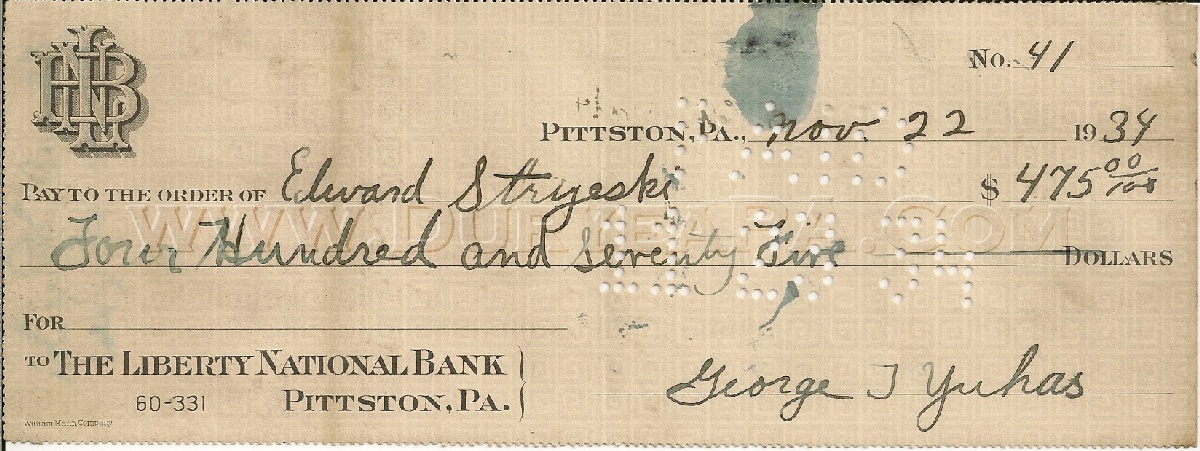 LNB
No. 41
PITTSTON, PA., Nov. 22 1934
PAY TO THE ORDER OF Edward Stryeski $ 475 00/100
WWW.DURYEAPA.COM
Four Hundred and seventy Five DOLLARS
FOR
TO THE LIBERTY NATIONAL BANK
60-331 PITTSTON, PA.
George J Yuhas